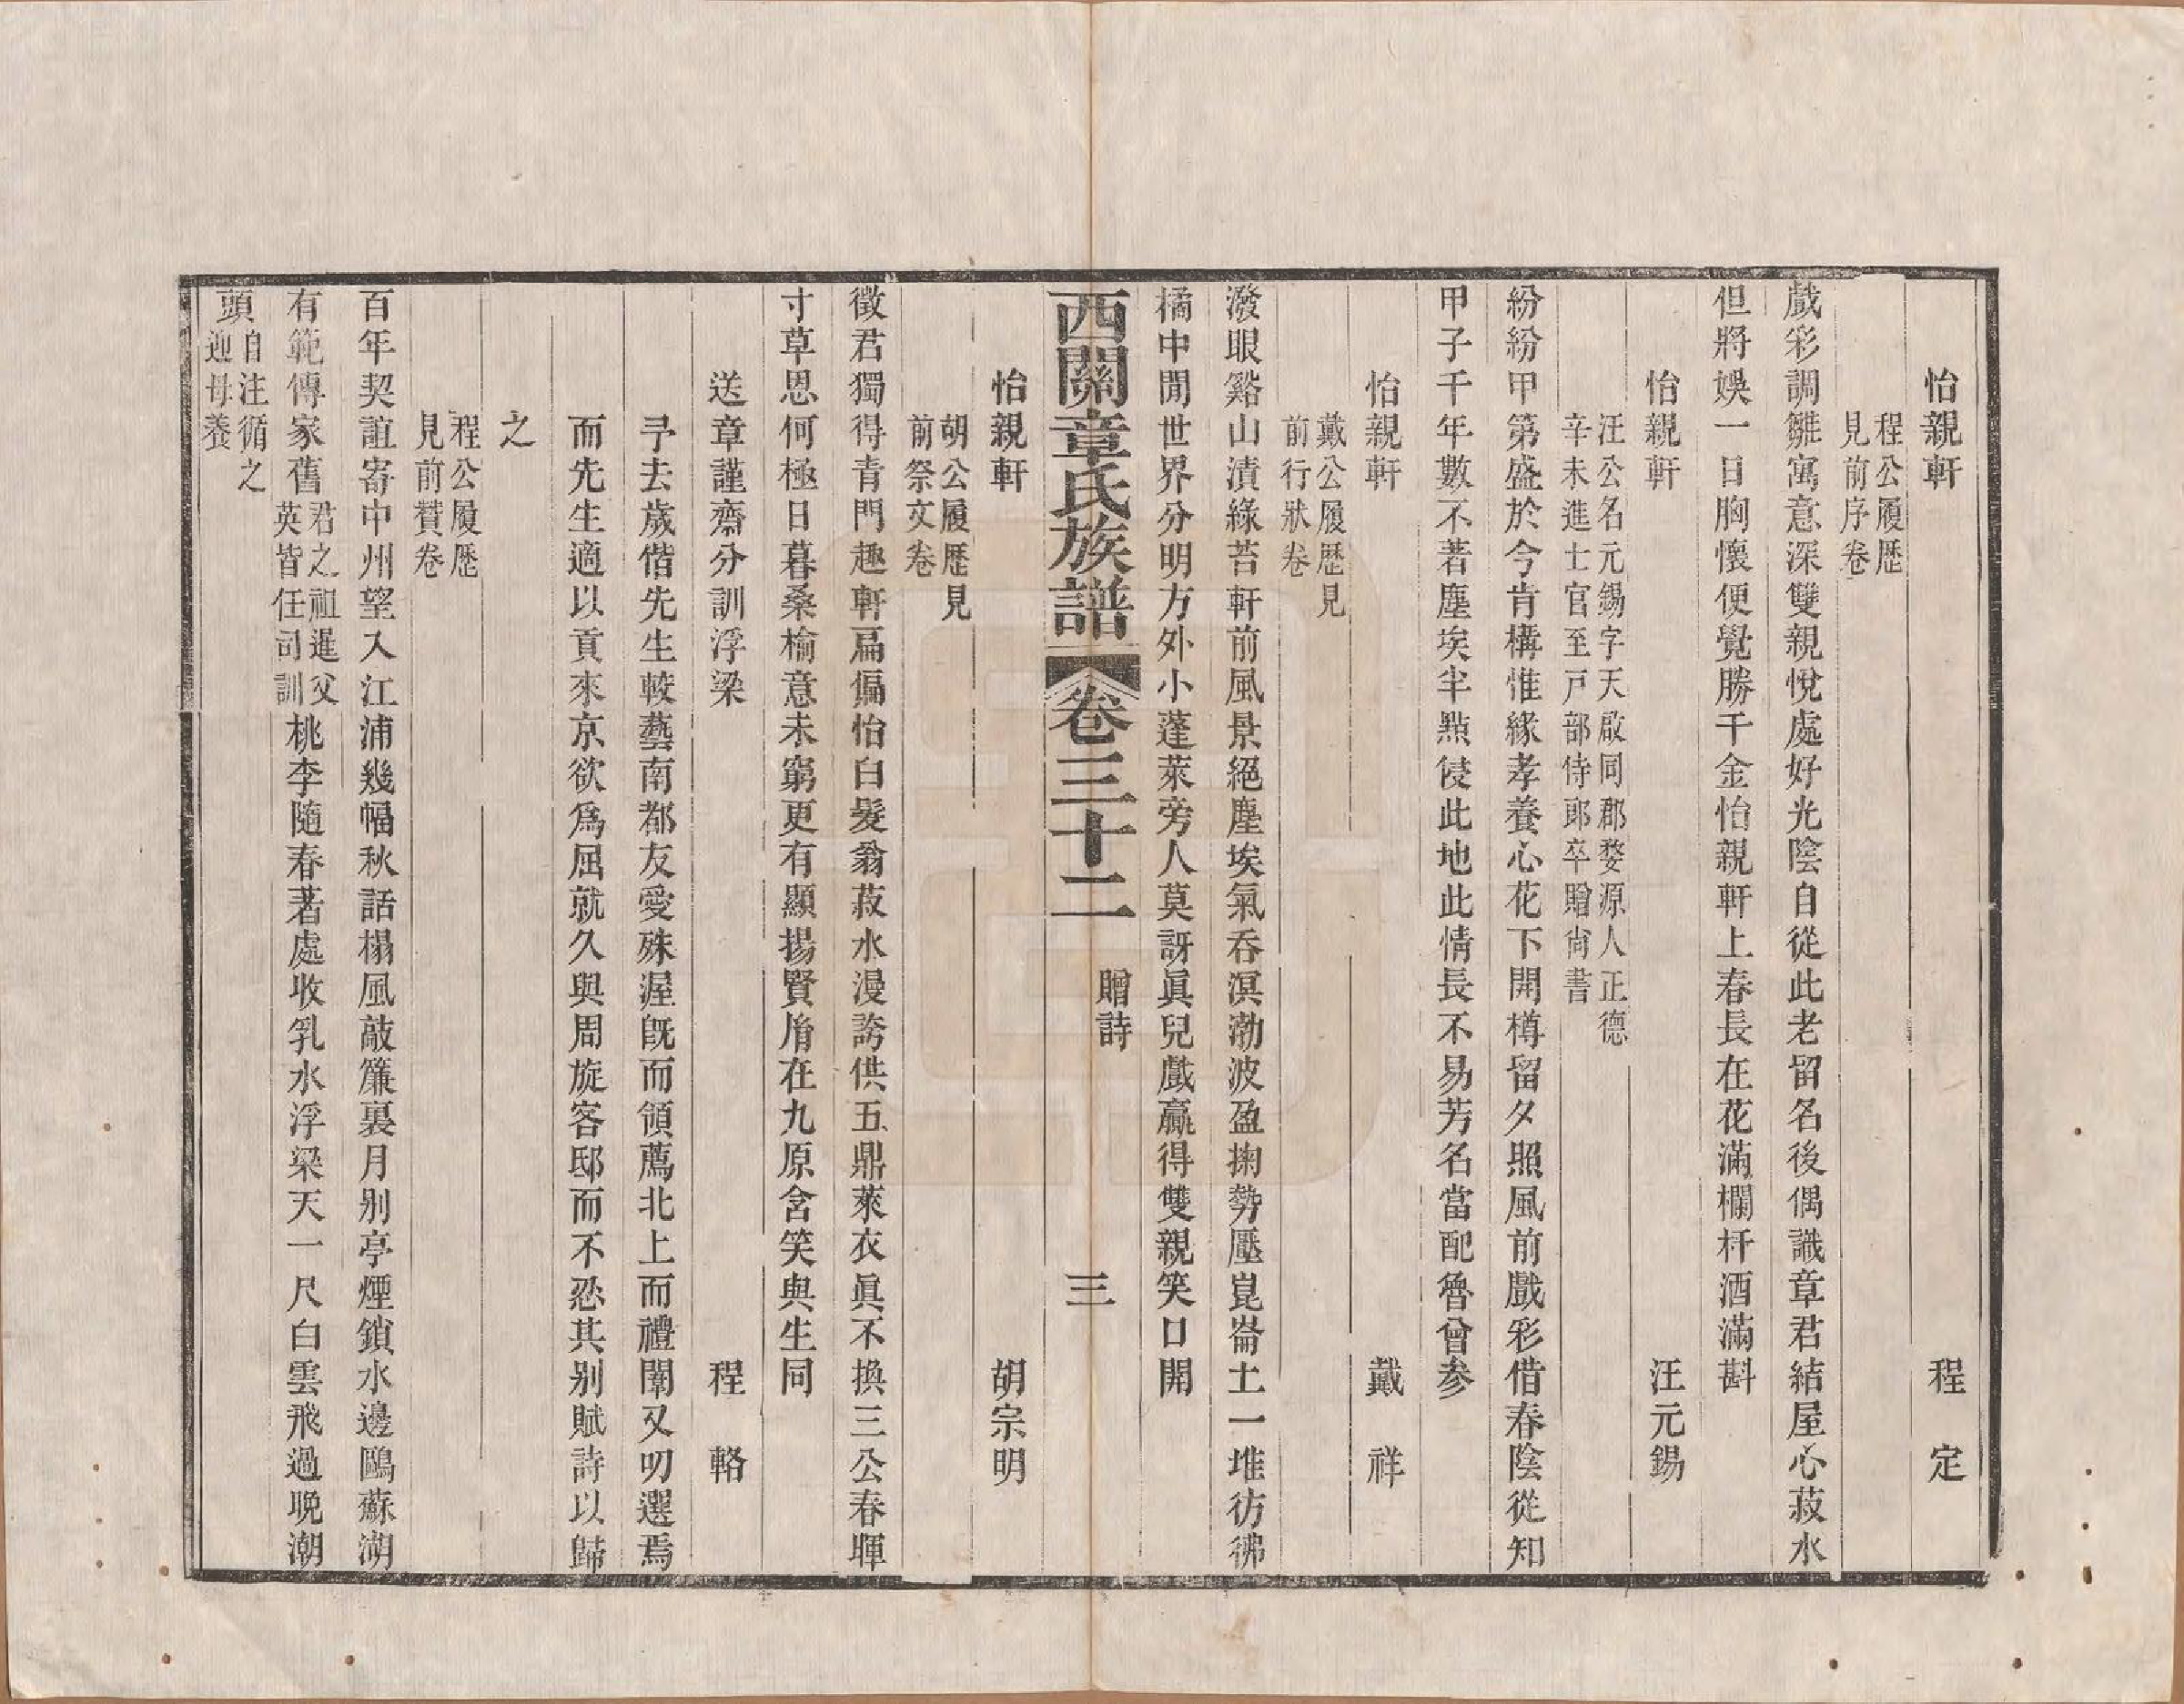 怡親軒　程　定
程公履歷
見前序卷
戲彩調雛寓意深雙親悅處好光陰自從此老留名後偶識章君結屋心菽水
但將娛一日胸懷便覺勝千金怡親軒上春長在花滿欄杆酒滿斟
怡親軒　汪元錫
汪公名元錫字天啟同郡婺源人正德
辛未進士官至戸部侍郎卒贈尚書
紛紛甲第盛於今肯構惟緣孝養心花下開樽留夕照風前戲彩借春陰從知
甲子千年數不著塵埃半點侵此地此情長不易芳名當配魯曾參
怡親軒　戴　祥
戴公履歷見
前行狀卷
潑眼谿山漬綠苔軒前風景絕塵埃氣吞溟渤波盈掬勢壓崑崙土一堆彷彿
橘中閒世界分明方外小蓬萊旁人莫訝眞兒戲贏得雙親笑口開
西關章氏族譜　卷三十二　贈詩　三
怡親軒　胡宗明
胡公履歷見
前祭文卷
徵君獨得青門趣軒扁偏怡白髮翁菽水漫誇供五鼎萊衣眞不換三公春暉
寸草恩何極日暮桑榆意未窮更有顯揚賢胤在九原含笑與生同
送章謹齋分訓浮梁　程　輅
予去歲偕先生較藝南都友愛殊渥旣而領薦北上而禮闈又叨選焉
而先生適以貢來京欲爲屈就久與周旋客邸而不忍其別賦詩以歸
之
程公履歷
見前贊卷
百年契誼寄中州望入江浦幾幅秋話榻風敲簾裏月別亭煙鎖水邊鷗蘇湖
有範傳家舊君之祖暹父英皆任司訓桃李隨春著處收乳水浮梁天一尺白雲飛過晚潮
頭自注循之迎母養